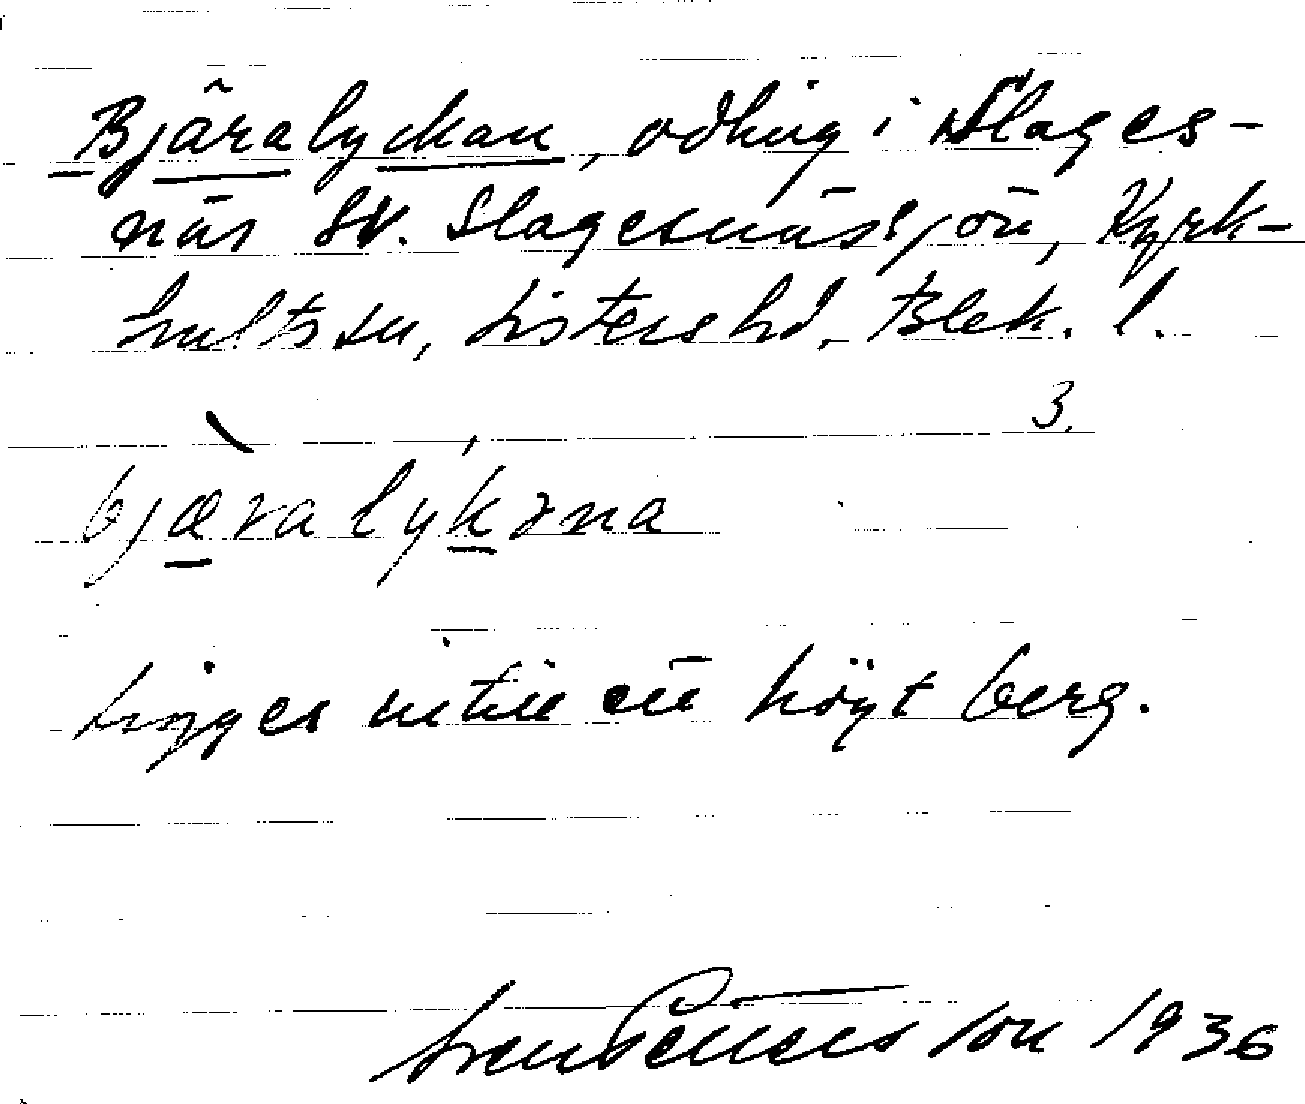 Bjäralyckan, odling i Slages-
näs SV. Slagesnässjön, Kyrk-
hults sn, Listers hd, Blek. l.
3.
bjæralykəna
Ligger intill ett högt berg.
Sven Benson 1936